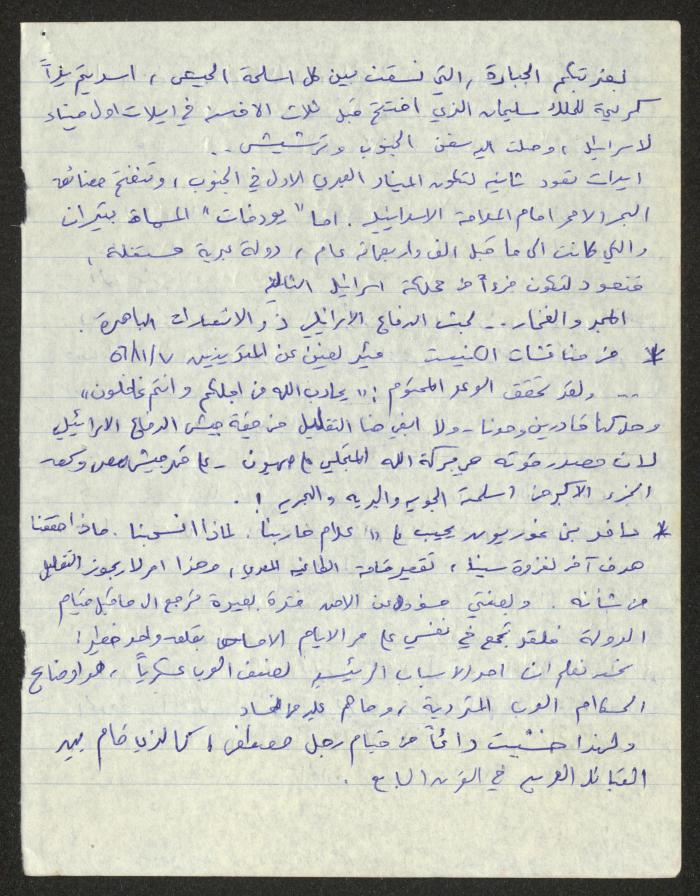 بعزيمتكم الجبارة، التي نسقت بين كل اسلحة الجيش، اسديتم يداً
كريمة للملك سليمان الذي افتتح قبل ثلاث الاف سنة في ايلات اول ميناء
لاسرائيل، وصلت اليه سفن الجنوب وترشيش ..
ايلات تعود ثانية لتكون الميناء العبري الاول في الجنوب، وتنفتح مضائق
البحر الاحمر امام الملاحة الاسرائيلية. اما "يودفات" المسماة بتيران
والتي كانت الى ما قبل الف واربعمائة عام، دولة عبرية مستقلة،
فتعود لتكون جزءاً من مملكة اسرائيل الثالثة
المجد والفخار .. لجيش الدفاع الاسرائيلي ذو الانتصارات الباهرة.
* من مناقشات الكنيست مئير لفين عن المتدينين ٥٦/١١/٧
... ولقد تحقق الوعد المحتوم: "يحارب الله من اجلكم وانتم غافلون"
وحدكنا قادرين وحدنا - ولا ابغي هنا التقليل من قيمة جيش الدفاع الاسرائيلي
لان مصدر قوته هي بركة الله المتجلي على صهيون - على قهر جيش مصر وكسر
الجزء الاكبر من اسلحته الجوية والبرية والبحرية !.
* دافيد بن غوريون يجيب على "علام حاربنا. لماذا انسحبنا. ماذا حققنا
هدف آخر لغزوة سيناء، تقصير قامة الطاغية المصري، وهذا امر لا يجوز التقليل
من شأنه. وبصفتي مسؤول عن الامن فترة بعيدة ترجع الى ما قبل قيام
الدولة فلقد تجمع في نفسي على مر الايام الاحساس بقلق واحد خطير!
نحن نعلم ان احد الاسباب الرئيسية لضعف العرب عسكرياً، هو اوضاع
الحكام العرب المتردية، وما هم عليه من فساد
ولهذا خشيت دائماً من قيام رجل مصطفى، كالذي قام بين
القبائل العربية في القرن السابع.